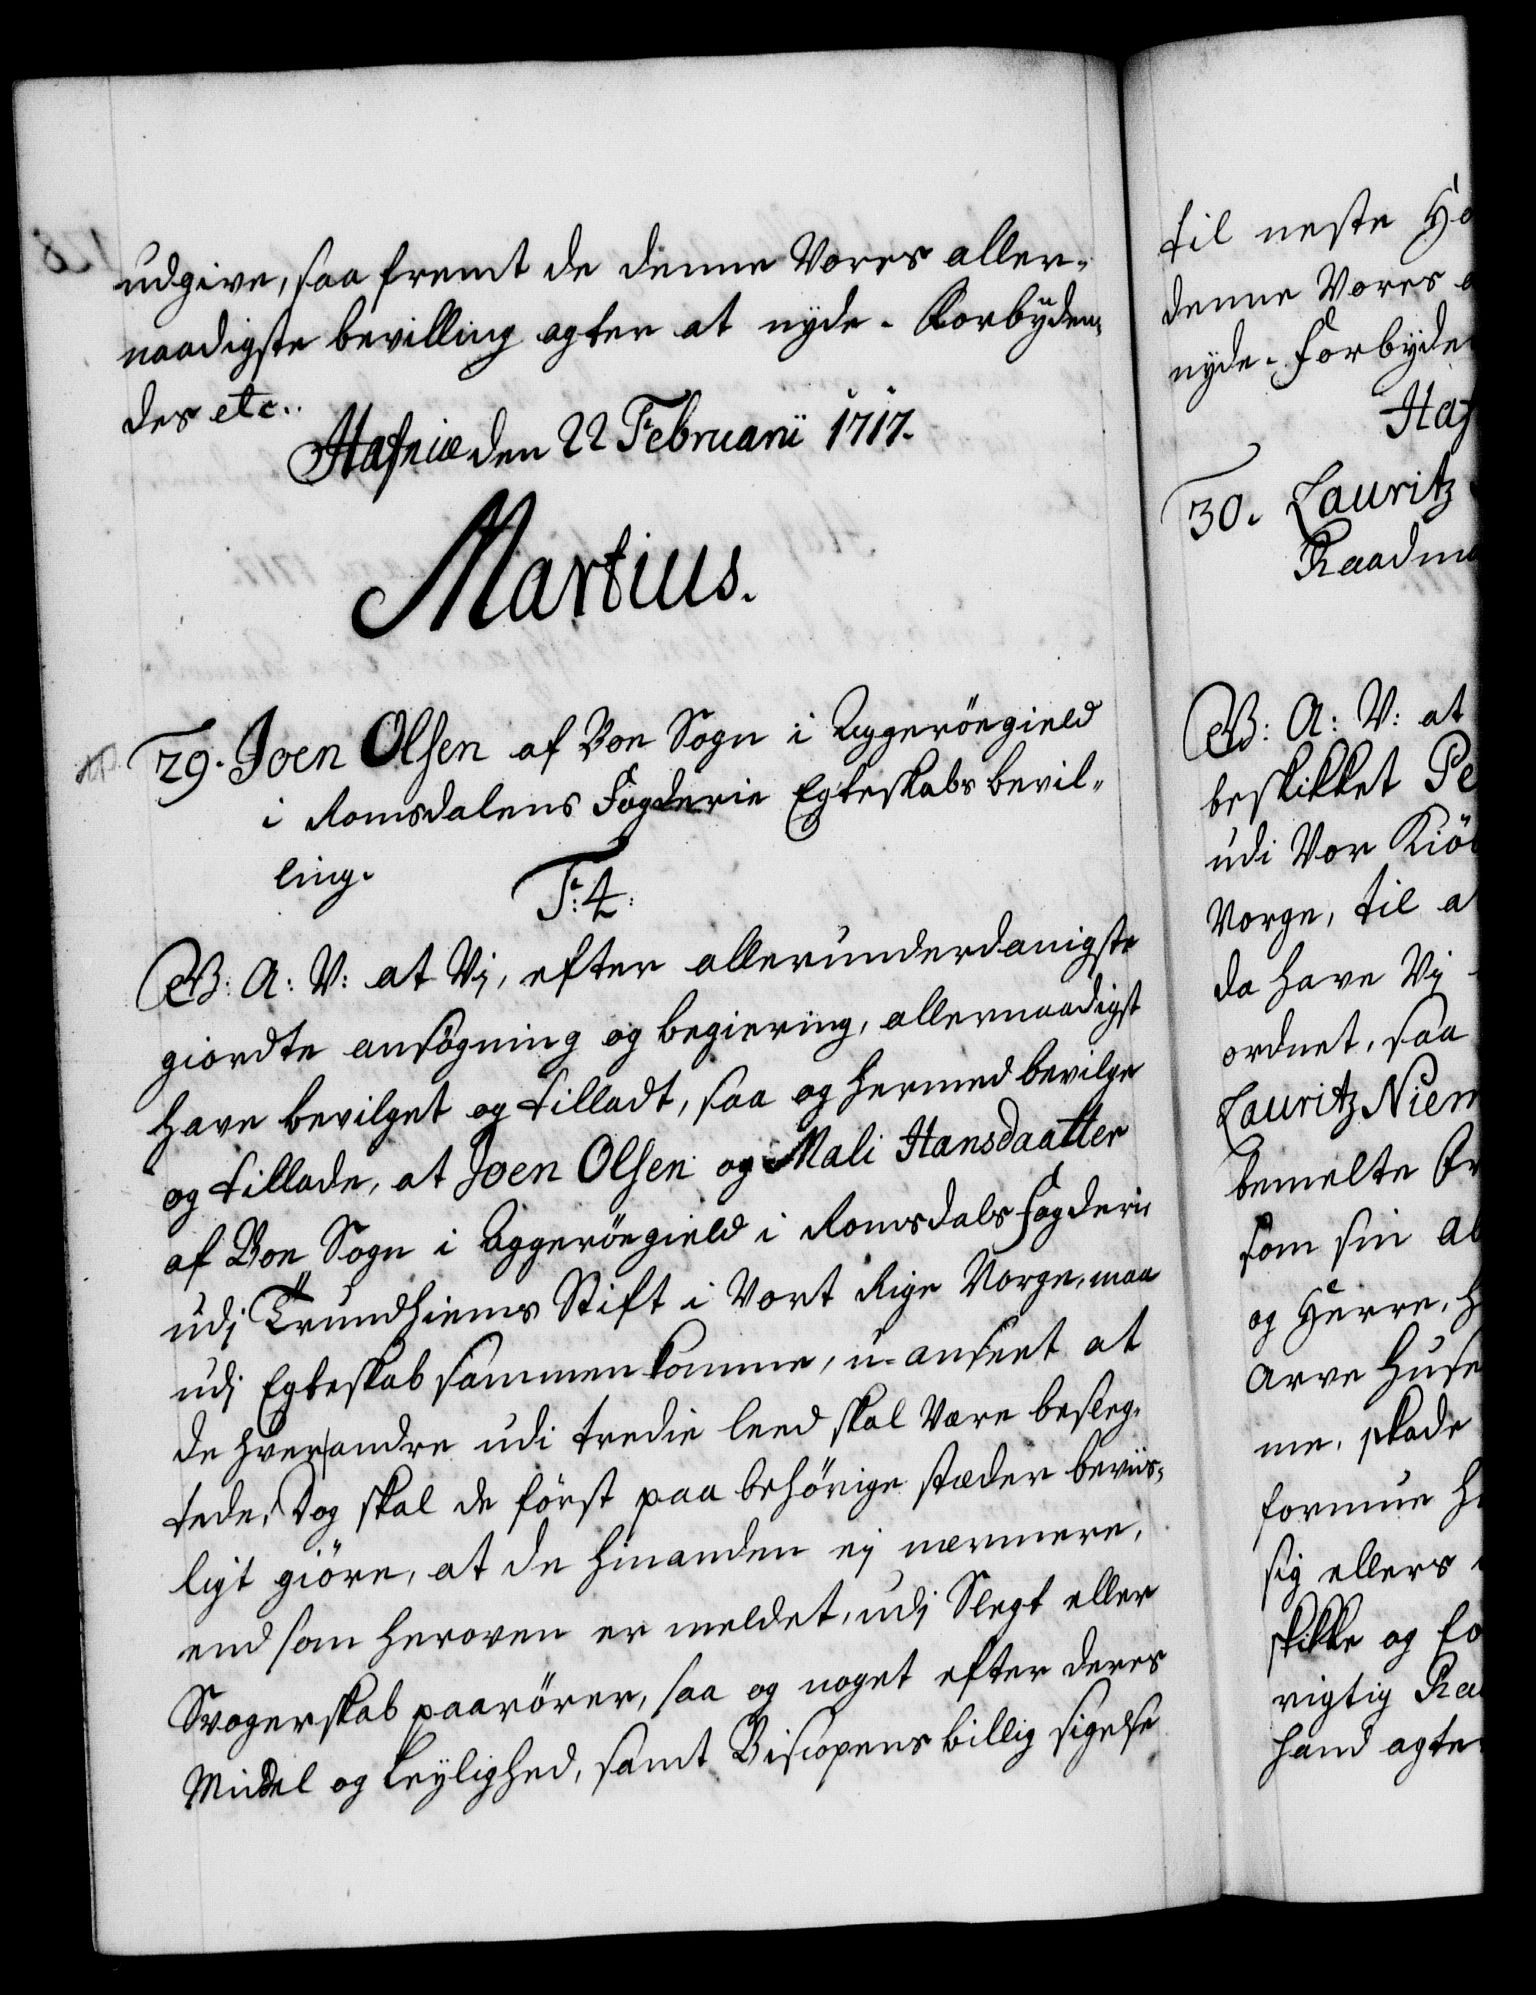 udgive, saa fremt de denne Vores aller-
naadigste bevilling agter at nyde. Forbyden-
des etc.
Hafniæ den 22 Februarii 1717.
Martius.
29. Joen Olsen af Boe Sogn i Aggeröegield
i Romsdalens Fogderie Egteskabs bevil-
ling.
F: 4.
G. A: V: at Vj, efter allerunderdanigste
giordte ansögning og begiering, allernaadigst
have bevilget og tilladt, saa og hermed bevilge
og tillade, at Joen Olsen og Mali Hansdaatter
af Boe Sogn i Aggeröegield i Romsdals Fogderi
udj Trundhiems Stift i Vort Rige Norge, maa
udj Egteskab sammenkomme, u-anseet at
de hverandre udi tredie leed skal være besleg-
tede; Dog skal de först paa behörige stæder beviis-
ligt giöre, at de hinanden ej nærmere,
end som heroven er meldet, udj Slegt eller
Svogerskab paarörer, saa og noget efter deres
Middel og Leylighed, samt Biscopens billig sigelse
til neste Ho
denne Vores a
nyde. Forbyde
Haf
30. Lauritz
Raadm
G: A: V: at
beskikket Pe
udi Vor Kiö
Norge, til a
da have Vj
ordnet, saa
Lauritz Niem
bemelte
som sin al
og Herre, H
Arve Huse
me, skade
formue h
sig ellers
skikke og fo
rigtig Ra
hand agte